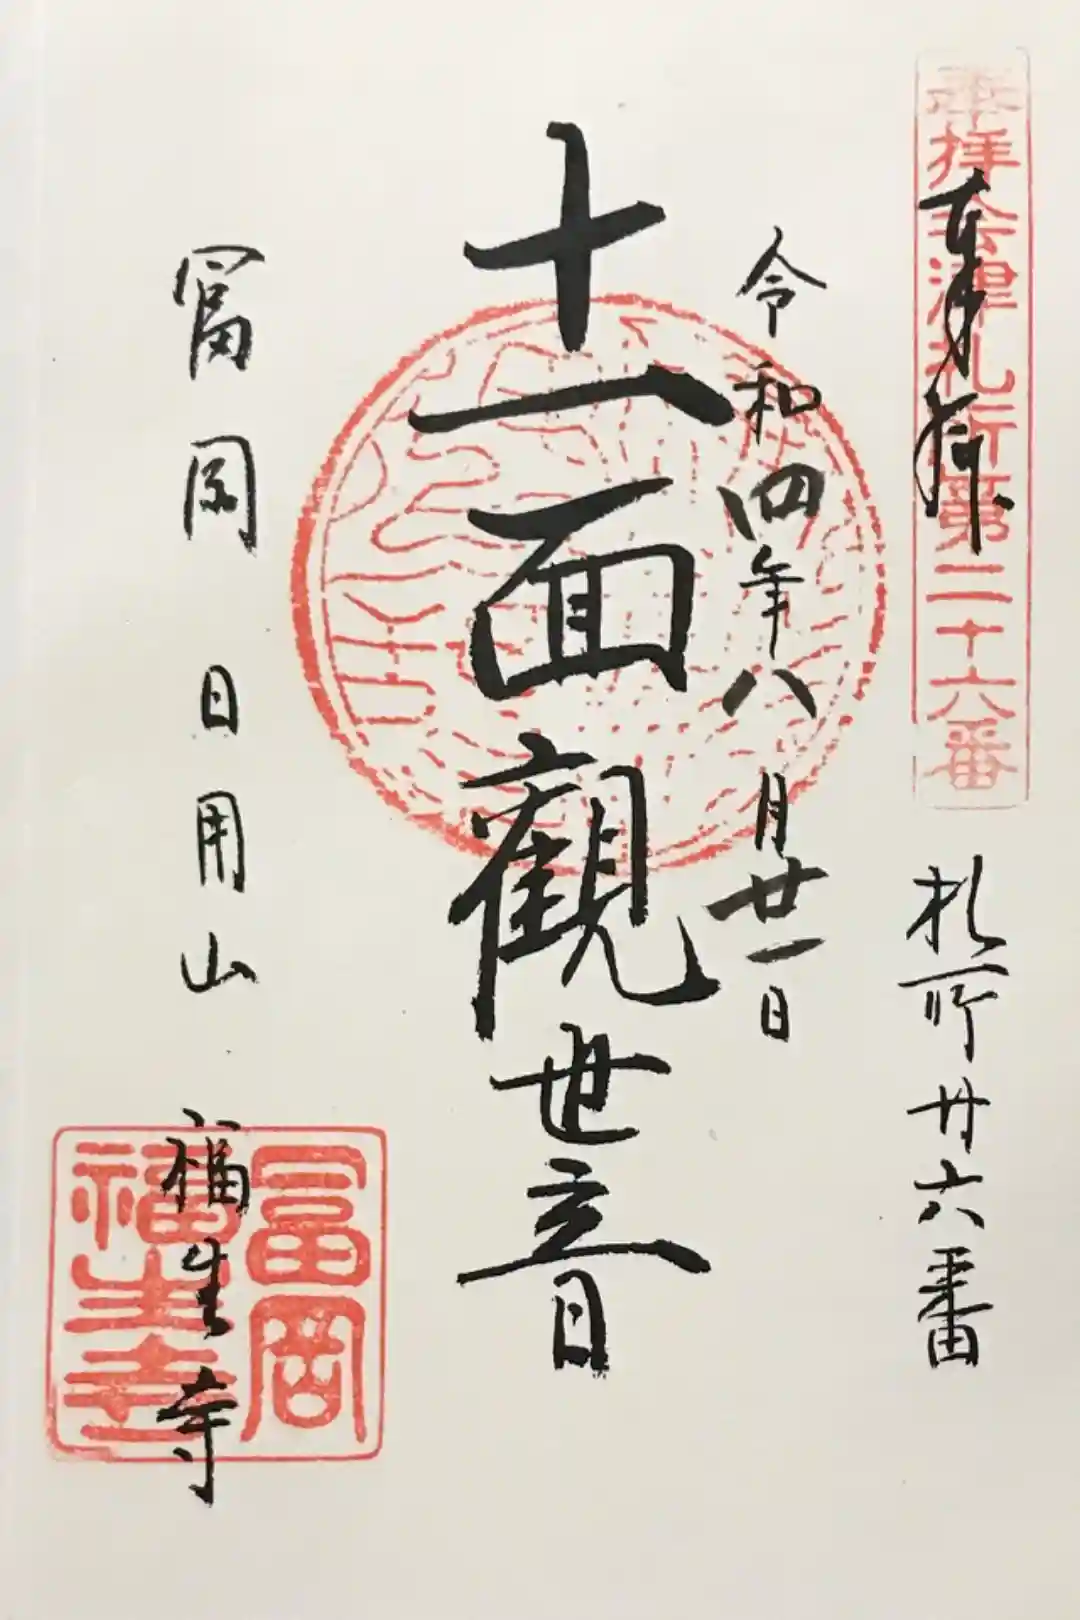 奉拝会津札所第二十六番
奉拝
札所廿六番
令和四年八月廿一日
十一面觀世音
冨岡 日用山 福生寺
冨岡
福生寺